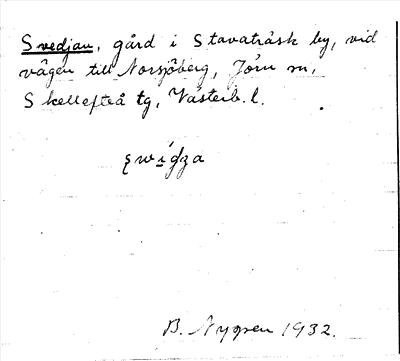 Svedjan, gård i Stavaträsk by, vid
vägen till Norsjöberg, Jörn sn,
Skellefteå tg, Västerb. l.
B. Nygren 1932.